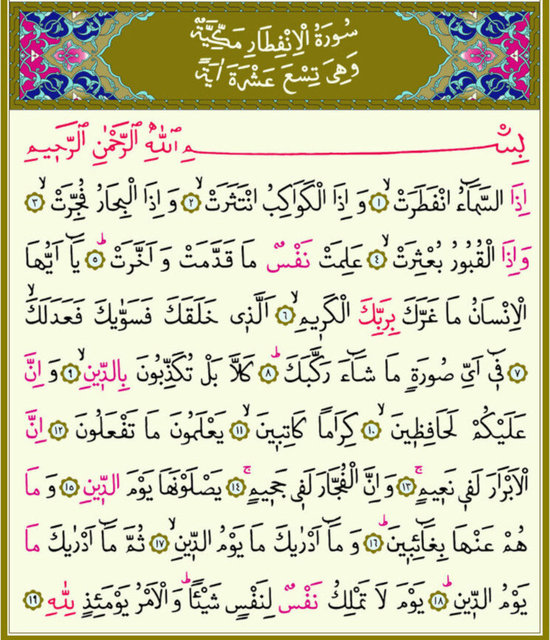 سُورَةُ الْاِنْفِطَارِ مَكِّيَّةٌ
وَهِىَ تِسْعَ عَشْرَةَ اٰيَةً
بِسْمِ اللّٰهِ الرَّحْمٰنِ الرَّحٖيمِ
اِذَا السَّمَٓاءُ انْفَطَرَتْۙ ﴿١﴾ وَاِذَا الْكَوَاكِبُ انْتَثَرَتْۙ ﴿٢﴾ وَاِذَا الْبِحَارُ فُجِّرَتْۙ ﴿٣﴾
وَاِذَا الْقُبُورُ بُعْثِرَتْۙ ﴿٤﴾ عَلِمَتْ نَفْسٌ مَا قَدَّمَتْ وَاَخَّرَتْؕ ﴿٥﴾ يَٓا اَيُّهَا
الْاِنْسَانُ مَا غَرَّكَ بِرَبِّكَ الْكَرٖيمِۙ ﴿٦﴾ اَلَّذٖى خَلَقَكَ فَسَوّٰيكَ فَعَدَلَكَۙ
﴿٧﴾ فٖٓى اَىِّ صُورَةٍ مَا شَٓاءَ رَكَّبَكَؕ ﴿٨﴾ كَلَّا بَلْ تُكَذِّبُونَ بِالدّٖينِۙ ﴿٩﴾ وَاِنَّ
عَلَيْكُمْ لَحَافِظٖينَۙ ﴿١٠﴾ كِرَامًا كَاتِبٖينَۙ ﴿١١﴾ يَعْلَمُونَ مَا تَفْعَلُونَ ﴿١٢﴾ اِنَّ
الْاَبْرَارَ لَفٖى نَعٖيمٍۚ ﴿١٣﴾ وَاِنَّ الْفُجَّارَ لَفٖى جَحٖيمٍۚ ﴿١٤﴾ يَصْلَوْنَهَا يَوْمَ الدّٖينِ ﴿١٥﴾ وَمَا
هُمْ عَنْهَا بِغَٓائِبٖينَؕ ﴿١٦﴾ وَمَٓا اَدْرٰيكَ مَا يَوْمُ الدّٖينِۙ ﴿١٧﴾ ثُمَّ مَٓا اَدْرٰيكَ مَا
يَوْمُ الدّٖينِؕ ﴿١٨﴾ يَوْمَ لَا تَمْلِكُ نَفْسٌ لِنَفْسٍ شَيْـًٔاؕ وَالْاَمْرُ يَوْمَئِذٍ لِلّٰهِ ﴿١٩﴾